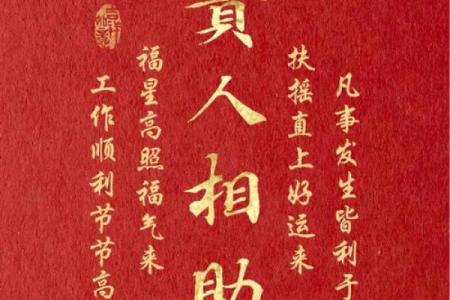 凡事发生皆利于
扶摇直上好运来
贵人相助
福星高照福气来
工作顺利节节高